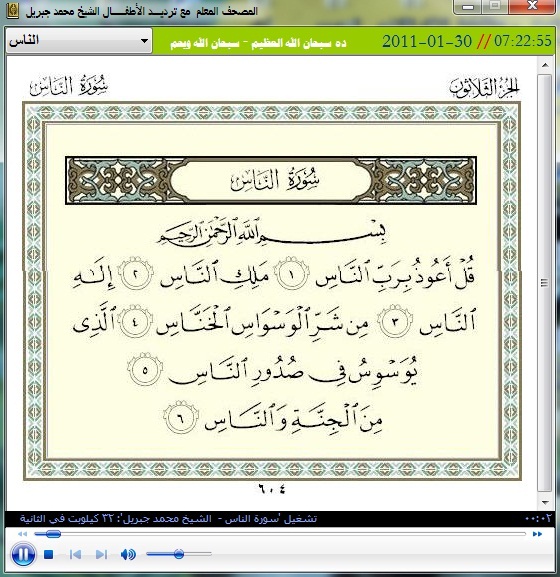 المصحف المعلم مع ترديد الأطفال الشيخ محمد جبريل
الناس
سبحان الله العظيم - سبحان الله وبحم
2011-01-30 // 07:22:55
الجزء الثلاثون
سُورَةُ النَّاسِ
سُورَةُ النَّاسِ
بِسْمِ ٱللَّهِ ٱلرَّحْمَٰنِ ٱلرَّحِيمِ
قُلْ أَعُوذُ بِرَبِّ ٱلنَّاسِ ١ مَلِكِ ٱلنَّاسِ ٢ إِلَٰهِ
ٱلنَّاسِ ٣ مِن شَرِّ ٱلْوَسْوَاسِ ٱلْخَنَّاسِ ٤ ٱلَّذِى
يُوَسْوِسُ فِى صُدُورِ ٱلنَّاسِ ٥
مِنَ ٱلْجِنَّةِ وَٱلنَّاسِ ٦
٦٠٤
تشغيل 'سورة الناس - الشيخ محمد جبريل': ٣٢ كيلوبت في الثانية
٠٠:٠٢